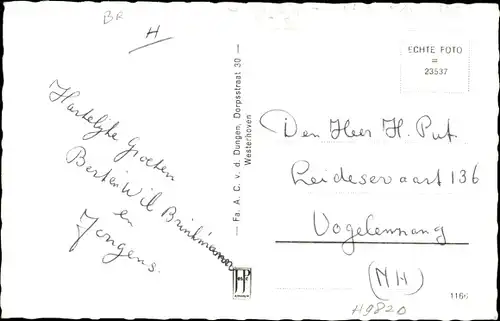 BR
H
Hartelijke Groeten
Bert en Wil Brinkman
en
Jongens.
— Fa. A. C. v. d. Dungen, Dorpsstraat 30 —
Westerhoven
ECHTE FOTO
=
23537
Den Heer H. Put
Leidsevaart 136
Vogelenzang
(NH)
1166
H9820